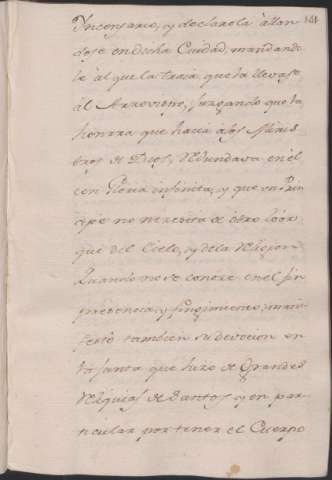 141
Incensario, y declarola allan
dose en dicha Ciudad, mandando
le al que la traia, que la llevase
al Arzovispo, juzgando que la
honrra que hacia a los Minis
tros de Dios, redundava en el
con Gloria infinita, y que un Prin
cipe no necesita de otro loor
que del Cielo, y de la Religion
quando no se conoce en el sin
prebencion, y fingimiento; mani
festo tambien su devocion en
la junta que hizo de Grandes
Reliquias de Santos, y en par
ticular por tener el Cuerpo